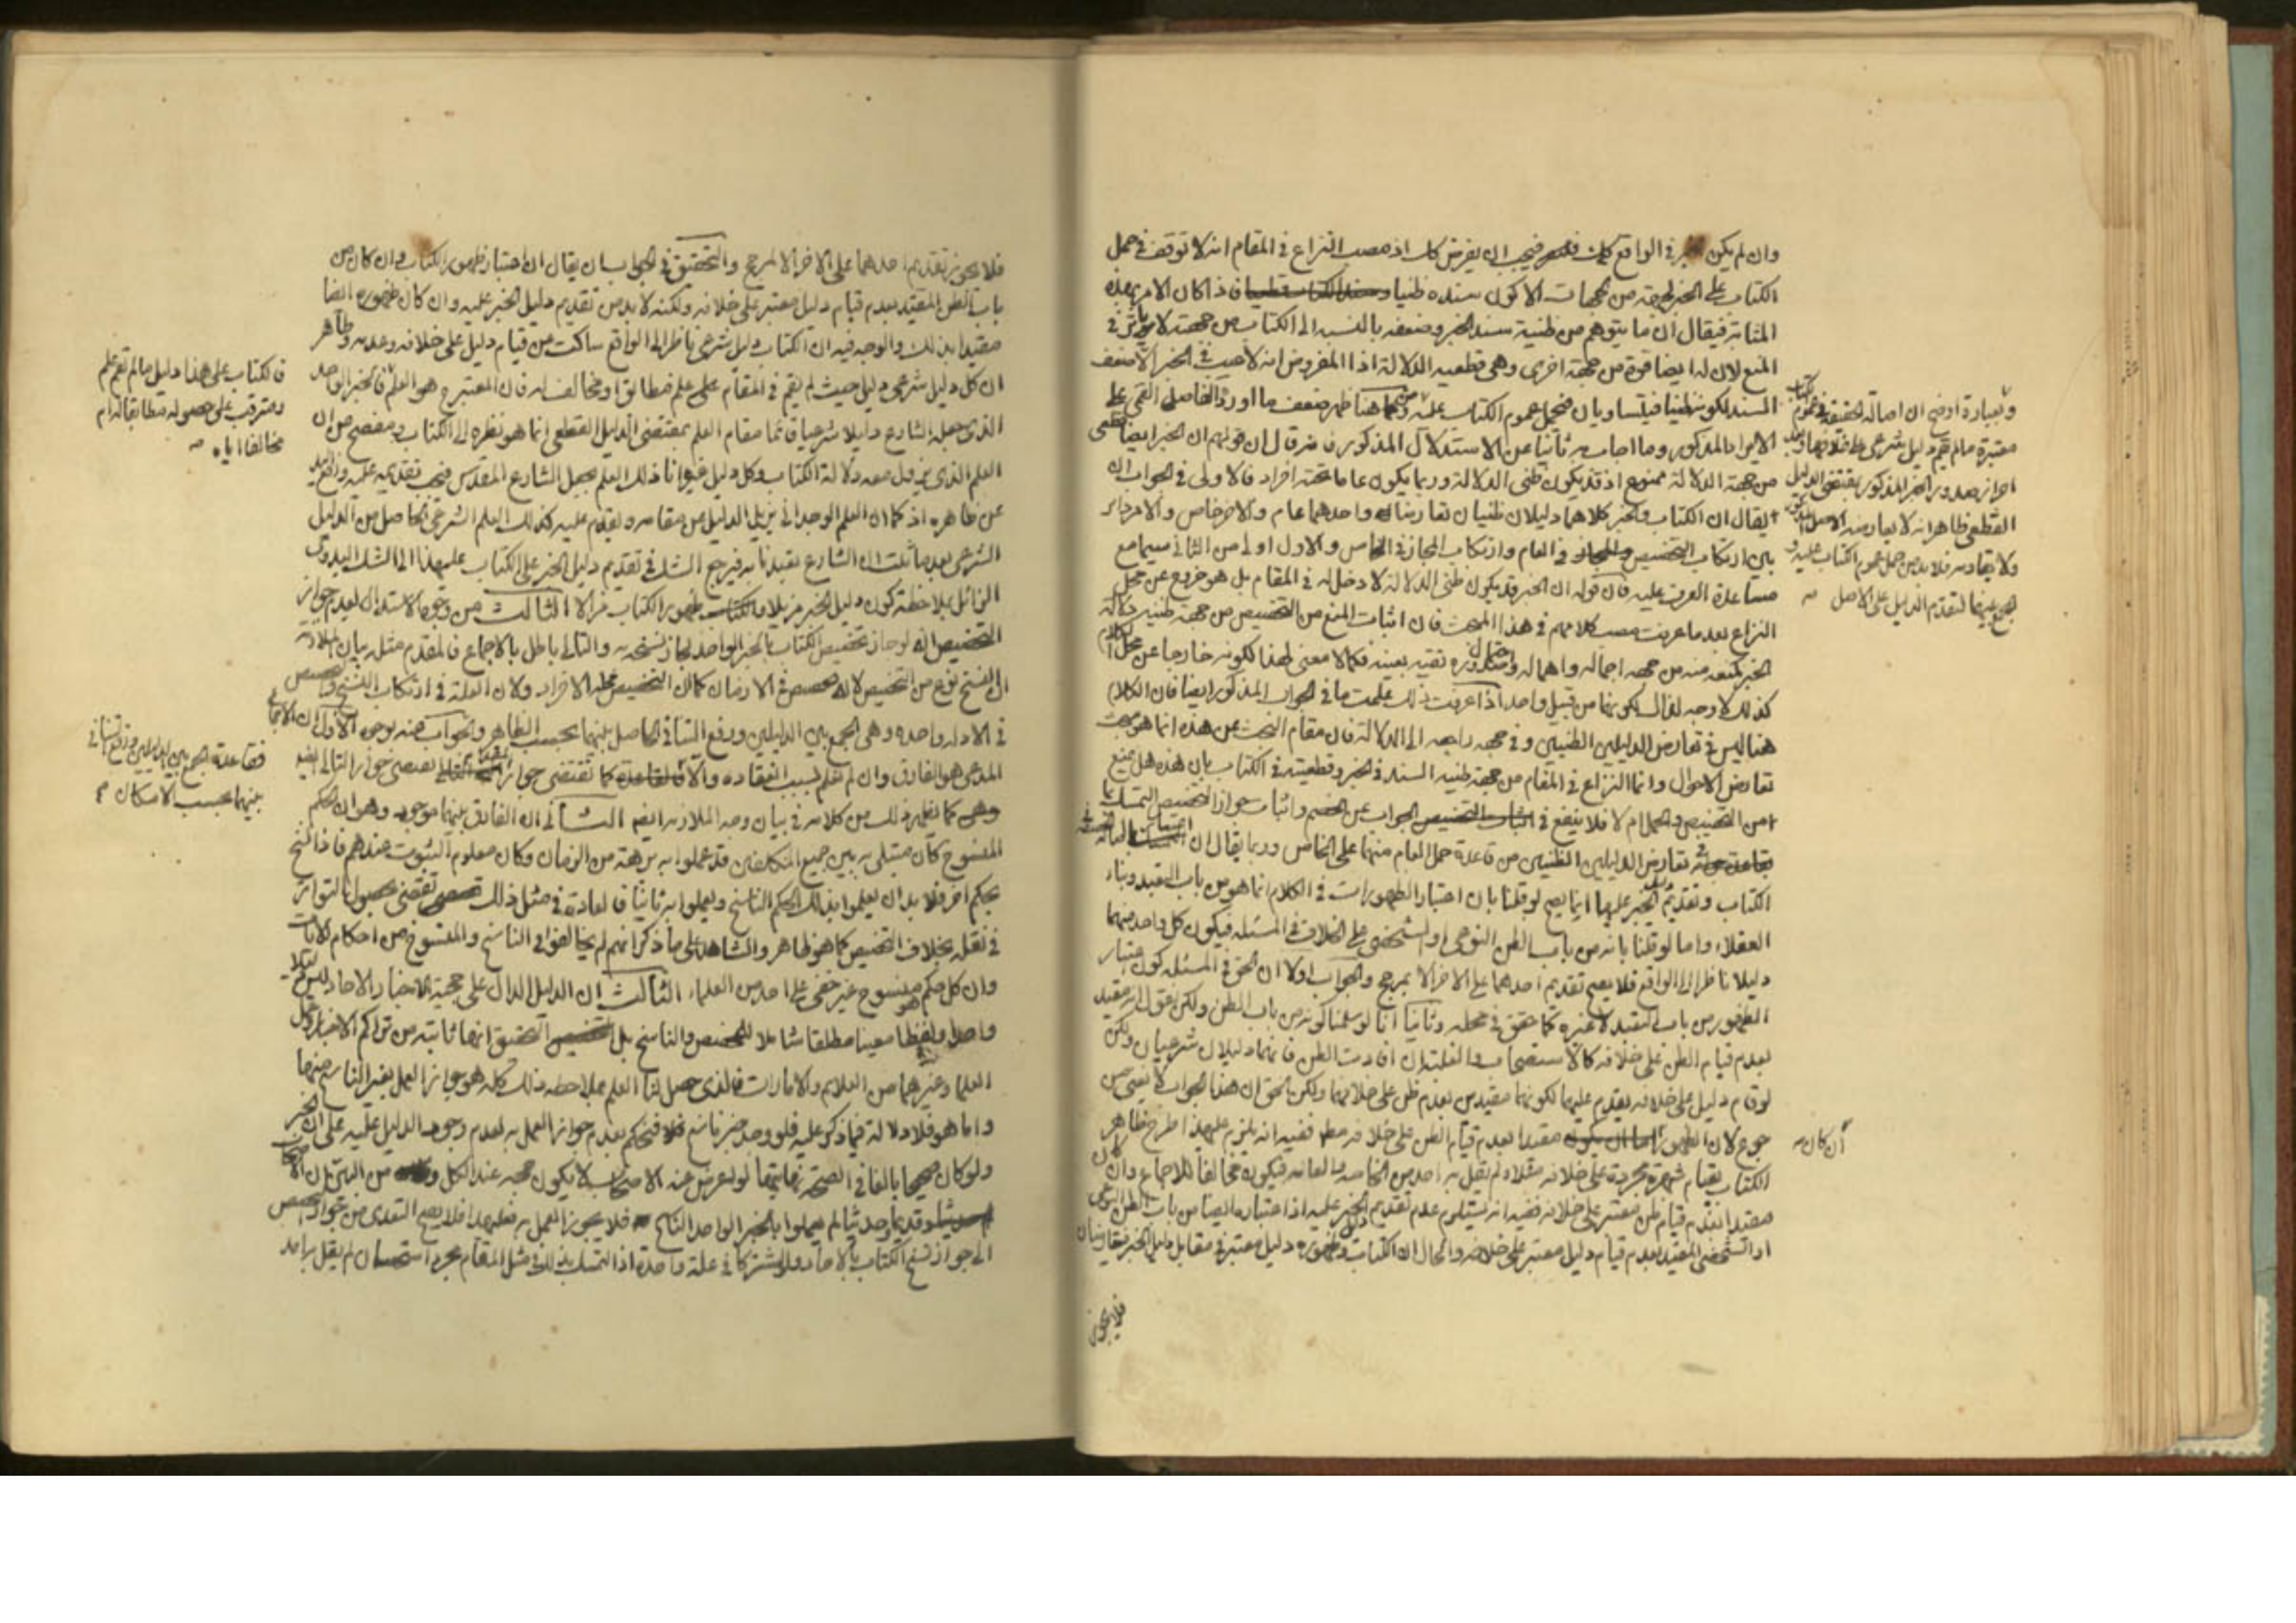 وان لم يكن في الواقع كك فيجب ان يفرض كك اذ مصب النزاع في المقام انه لا توقف في حمل
الكتاب على الخبر من الجهات الا كون سنده ظنيا فاذا كان الامر بهذه
المثابة فيقال ان ما يتوهم من ظنية سند الخبر وضعفه بالنسبة الى الكتاب من جهته لا يؤثر في
المنع لان له ايضا قوة من جهة اخرى وهي قطعية الدلالة اذ المفروض انه لا عيب في الخبر الا ضعف
السند لكونه ظنيا فيتساويان فيحمل عموم الكتاب عليه ومن هنا ظهر ضعف ما اورد الفاضل القمي على
الايراد المذكور وما اجاب به ثانيا عن الاستدلال المذكور فانه قال ان قولهم ان الخبر ايضا قطعي
من جهة الدلالة ممنوع اذ قد يكون ظني الدلالة وربما يكون عاما تحته افراد فالاولى في الجواب ان
يقال ان الكتاب والخبر كلاهما دليلان ظنيان تعارضا واحدهما عام والاخر خاص والامر دائر
بين ارتكاب التخصيص في العام وارتكاب المجاز في الخاص والاول اولى من الثاني سيما مع
مساعدة العرف عليه فان قوله ان الخبر قد يكون ظني الدلالة لا دخل له في المقام بل هو خروج عن محل
النزاع بعد ما عرفت مصب كلامهم في هذا المبحث فان اثبات المنع من التخصيص من جهة ظنية دلالة
الخبر لمنعه منه من جهة اجماله واهماله واحتمال صدوره تقية بعينه فكما لا معنى لهذا لكونه خارجا عن محل الكلام
كذلك لا وجه لذاك لكونهما من قبيل واحد اذا عرفت ذلك علمت ما في الجواب المذكور ايضا فان الكلام
هنا ليس في تعارض الدليلين الظنيين وفي جهة راجعة الى الدلالة فان مقام البحث عن هذه انما هو مبحث
تعارض الاحوال وانما النزاع في المقام من جهة ظنية السند في الخبر وقطعيته في الكتاب بان هذه هل تمنع
من التخصيص والحمل ام لا فلا ينفع في الجواب عن الخصم واثبات جواز التخصيص التمسك بما
في تعارض الدليلين الظنيين من قاعدة حمل العام منهما على الخاص وربما يقال ان اصالة الحقيقة في
الكتاب وتقديم الخبر عليها انما يصح لو قلنا بان اعتبار الظهورات في الكلام انما هو من باب التعبد وبناء
العقلاء واما لو قلنا بانه من باب الظن النوعي او الشخصي على الخلاف في المسئلة فيكون كل واحد منهما
دليلا ناظرا الى الواقع فلا يصح تقديم احدهما على الاخر الا بمرجح والجواب اولا ان الحق في المسئلة كون اعتبار
الظهور من باب التعبد لا غيره كما حقق في محله وثانيا انا لو سلمنا كونه من باب الظن ولكن نقول انه مقيد
بعدم قيام الظن على خلافه كالاستصحاب والغلبة ان افادت الظن فانهما دليلان شرعيان ولكن
لو قام دليل على خلافه يقدم عليهما لكونهما مقيدين بعدم ظن على خلافهما ولكن الحق ان هذا الجواب لا يغني من
جوع لان الظهور ان كان مقيدا بعدم قيام الظن على خلافه مط ففيه انه يلزم عليهذا طرح ظاهر
الكتاب بقيام شهرة مجردة على خلافه مثلا ولم يقل به احد من الخاصة والعامة فيكون مخالفا للاجماع وان كان
مقيدا بعدم قيام ظن معتبر على خلافه ففيه انه يستلزم عدم تقديم الخبر عليه اذ اعتباره ايضا من باب الظن النوعي
او الشخصي المقيد بعدم قيام دليل معتبر على خلافه والحال ان الكتاب وظهوره دليل معتبر في مقابل دليل الخبر فيتعارضان
فلا يجوز
وبعبارة اوضح ان اصالة الحقيقة في عموم الكتاب
معتبرة ما لم يقم دليل شرعي على خلافها وبعد
احراز صدور الخبر المذكور بمقتضى الدليل
القطعي ظاهرا لا يعارضه الاصل المذكور
ولا يقاومه فلا بد من حمل عموم الكتاب عليه و
الجمع بينهما لتقدم الدليل على الاصل صه
ان كان صه
فلا يجوز تقديم احدهما على الاخر الا لمرجح والتحقيق في الجواب ان يقال ان اعتبار ظهور الكتاب وان كان من
باب الظن المقيد بعدم قيام دليل معتبر على خلافه ولكنه لا بد من تقديم دليل الخبر عليه وان كان ظهوره ايضا
مقيدا بذلك والوجه فيه ان الكتاب دليل شرعي ناظر الى الواقع ساكت من قيام دليل على خلافه وعدمه وظاهر
ان كل دليل شرعي دليل حيث لم يقم في المقام على علم مطابق او مخالف له فان المعتبر ح هو العلم فالخبر الواحد
الذي جعله الشارع دليلا شرعيا قائما مقام العلم بمقتضى الدليل القطعي انما هو نظره الى الكتاب ومفصح من ان
العلم الذي يزول معه دلالة الكتاب وكل دليل غيره انا ذلك العلم بجعل الشارع المقدس فيجب تقديمه عليه ورفع اليد
عن ظاهره اذ كما ان العلم الوجداني يزيل الدليل عن مقامه ويقدم عليه كذلك العلم الشرعي الحاصل من الدليل
الشرعي بعد ما ثبت ان الشارع تعبدنا به فيرجع الشك في تقديم دليل الخبر على الكتاب عليهذا الى الشك البدوي
الزائل بملاحظة كون دليل الخبر مزيلا لظهور الكتاب الثالث من وجوه الاستدلال لعدم جواز
التخصيص انه لو جاز تخصيص الكتاب بالخبر الواحد لجاز نسخه به والتالي باطل بالاجماع فالمقدم مثله بيان الملازمة
ان النسخ نوع من التخصيص لانه تخصيص في الازمان كما ان التخصيص في الافراد ولان العلة في ارتكاب النسخ والتخصيص
في الادلة واحدة وهي الجمع بين الدليلين ورفع التنافي الحاصل بينهما بحسب الظاهر والجواب عنه بوجوه الاول ان الاجماع
المدعى هو الفارق وان لم نعلم سبب انعقاده والا فالقاعدة كما تقتضي جواز المقدم تقتضي جواز التالي ايضا
كما يظهر ذلك من كلامه في بيان وجه الملازمة ايضا الثاني ان الفارق بينهما موجود وهو ان الحكم
المنسوخ كان مبتلى به بين جميع المكلفين قد عملوا به برهة من الزمان وكان معلوم الثبوت عندهم فاذا نسخ
بحكم اخر فلا بد ان يعلموا بذلك الحكم الناسخ ويعملوا به ثانيا فالعادة في مثل ذلك تقتضي حصول التواتر
في نقله بخلاف التخصيص كما هو ظاهر والشاهد على ما ذكر انهم لم يخالفوا في الناسخ والمنسوخ من احكام الايات
وان كل حكم منسوخ غير خفي على احد من العلماء الثالث ان الدليل الدال على حجية الاخبار الاحاد ليس دليلا
واحدا ولفظا معينا مطلقا شاملا للمخصص والناسخ بل التحقيق انها ثابتة من تراكم الاخبار وعمل
العلماء وغيرهما من العلايم والامارات فالذي حصل لنا العلم بملاحظة ذلك كله هو جواز العمل بغير الناسخ منها
واما هو فلا دلالة فيما ذكر عليه فلو وجد خبر ناسخ فنحكم بعدم جواز العمل به لعدم وجود الدليل عليه على ان الخبر
ولو كان صحيحا بالغا في الصحة نهايتها لو اعرض عنه الاصحاب لا يكون حجة عند الكل ومن البين ان الاصحاب
قديما وحديثا لم يعملوا بالخبر الواحد الناسخ فلا يجوز العمل به فعليهذا فلا يصح التعدي من جواز التخصيص
الى جواز نسخ الكتاب بالاحاد ولو اشتركا في علة واحدة اذ التمسك بذلك في مثل المقام مجرد استحسان لم يقل به احد
فالكتاب على هذا دليل ما لم تقم علم
ومترقب على حصوله مطابقا له ام
مخالفا اياه صه
فقاعدة الجمع بين الدليلين ورفع التنافي
بينهما بحسب الامكان